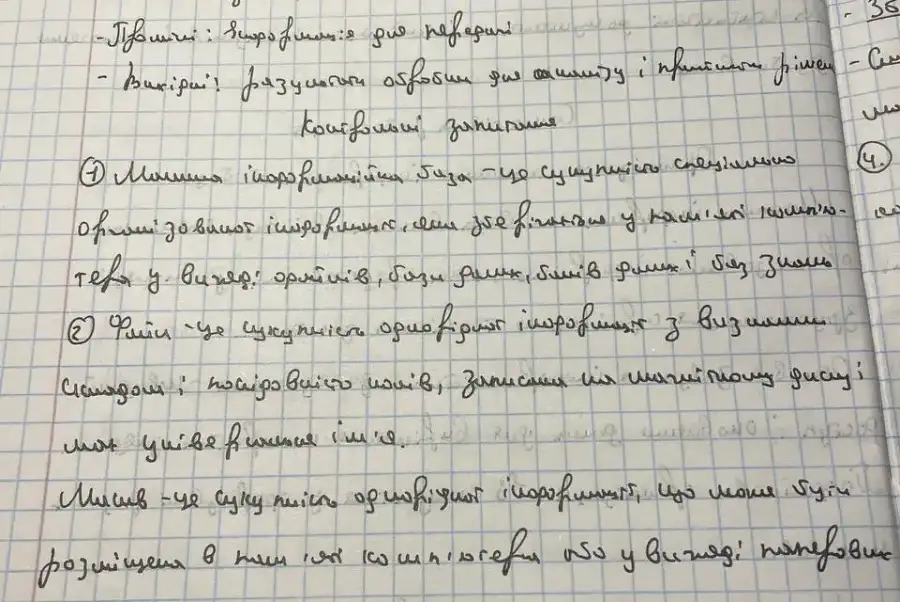 - Первинні: інформація для передачі
- Вихідні: результати обробки для аналізу і прийняття рішен
Контрольні запитання
① Машинна інформаційна база - це сукупність спеціально
організованої інформації, яка зберігається у пам'яті комп'ю-
тера у вигляді файлів, бази даних, банків даних і баз знань
② Файл - це сукупність однорідної інформації з визначеним
складом і послідовністю полів, записана на магнітному диску і
має універсальне ім'я.
Масив - це сукупність однорідної інформації, що може бути
розміщена в пам'яті комп'ютера або у вигляді паперових
- 
4.